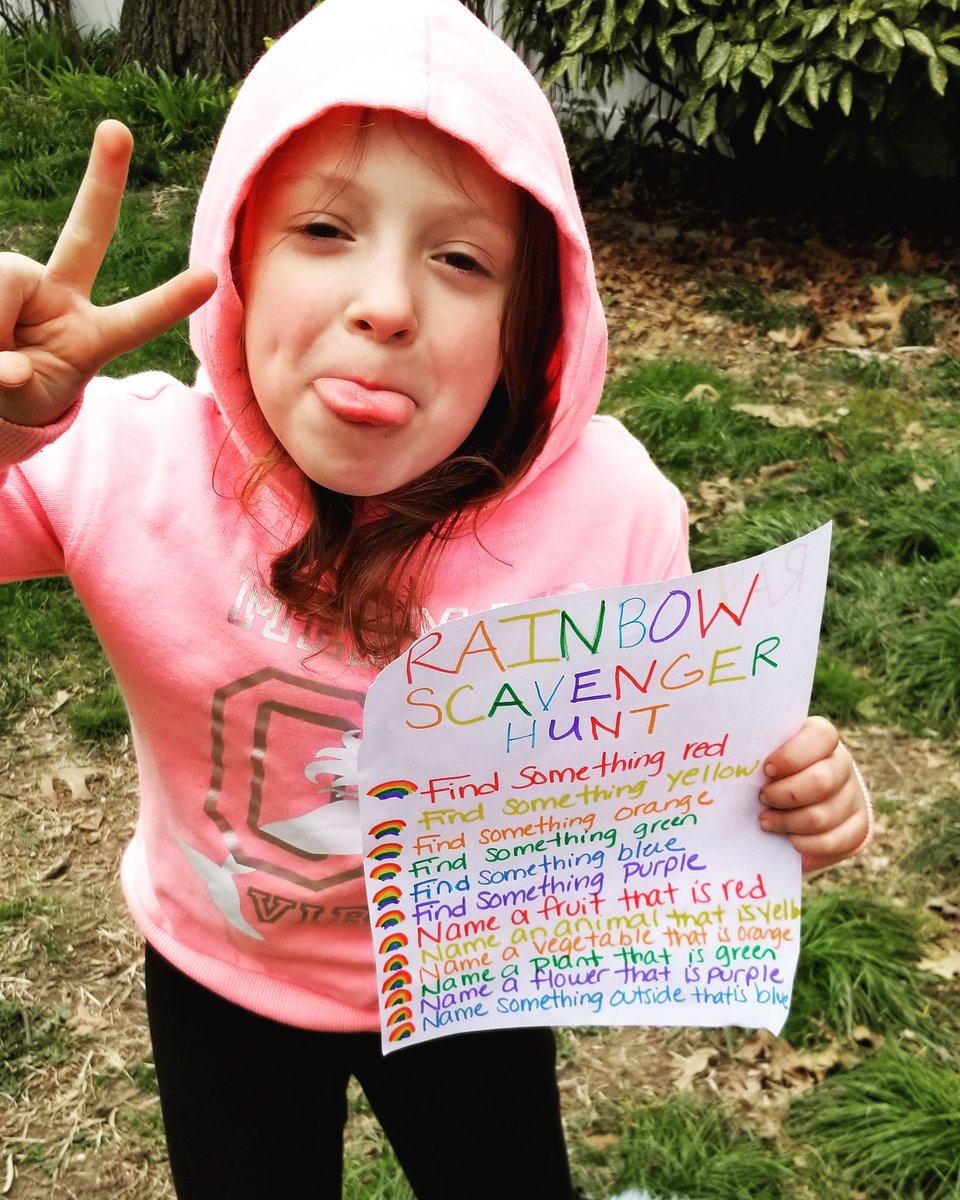 RAINBOW
SCAVENGER
HUNT
Find something red
Find something yellow
Find something orange
Find something green
Find something blue
Find something purple
Name a fruit that is red
Name an animal that is yell
Name a vegetable that is orange
Name a plant that is green
Name a flower that is purple
Name something outside that is blue